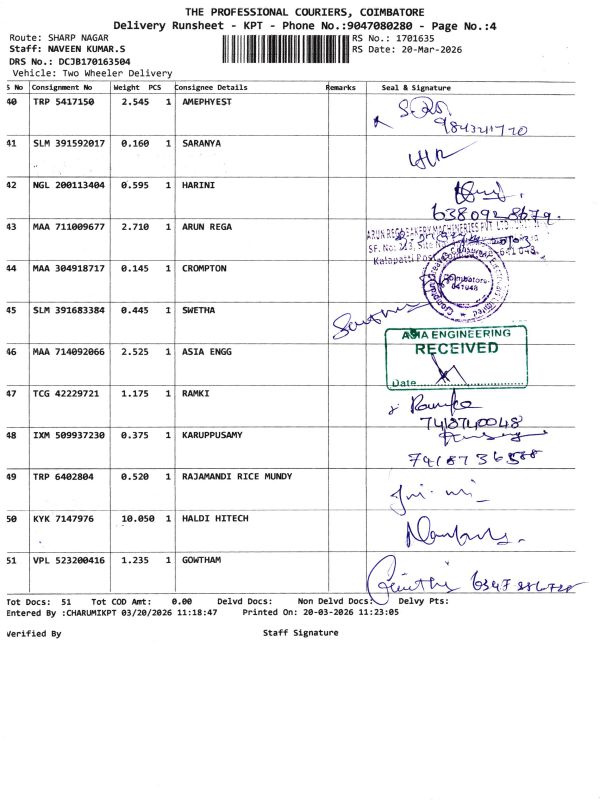 THE PROFESSIONAL COURIERS, COIMBATORE
Delivery Runsheet - KPT - Phone No.:9047080280 - Page No.:4
Route: SHARP NAGAR RS No.: 1701635
Staff: NAVEEN KUMAR.S RS Date: 20-Mar-2026
DRS No.: DCJB170163504
Vehicle: Two Wheeler Delivery
S No Consignment No Weight PCS Consignee Details Remarks Seal & Signature
40 TRP 5417150 2.545 1 AMEPHYEST
41 SLM 391592017 0.160 1 SARANYA
42 NGL 200113404 0.595 1 HARINI
43 MAA 711009677 2.710 1 ARUN REGA
44 MAA 304918717 0.145 1 CROMPTON
Coimbatore-
641048
45 SLM 391683384 0.445 1 SWETHA
46 MAA 714092066 2.525 1 ASIA ENGG
ASIA ENGINEERING
RECEIVED
Date
47 TCG 42229721 1.175 1 RAMKI
48 IXM 509937230 0.375 1 KARUPPUSAMY
49 TRP 6402804 0.520 1 RAJAMANDI RICE MUNDY
50 KYK 7147976 10.050 1 HALDI HITECH
51 VPL 523200416 1.235 1 GOWTHAM
Tot Docs: 51 Tot COD Amt: 0.00 Delvd Docs: Non Delvd Docs: Delvy Pts:
Entered By :CHARUMIKPT 03/20/2026 11:18:47 Printed On: 20-03-2026 11:23:05
Verified By Staff Signature